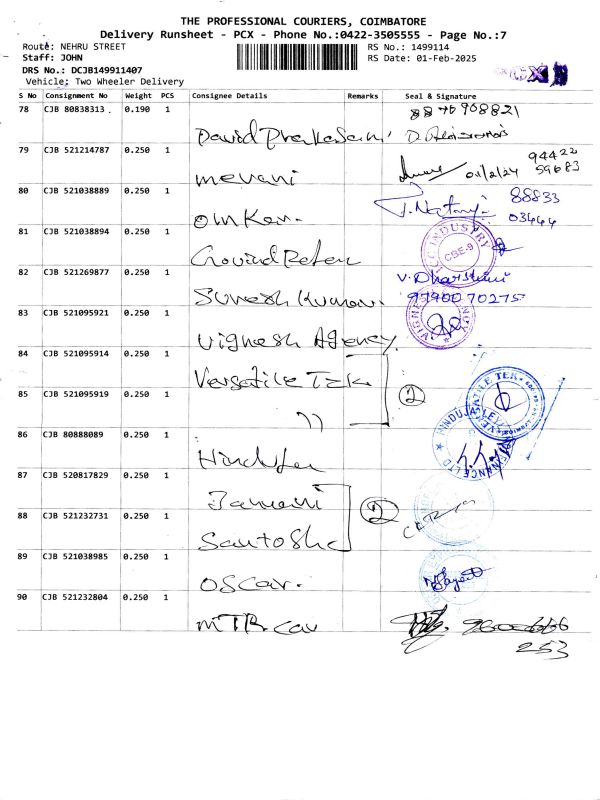 THE PROFESSIONAL COURIERS, COIMBATORE
Delivery Runsheet - PCX - Phone No.:0422-3505555 - Page No.:7
Route: NEHRU STREET
RS No.: 1499114
Staff: JOHN
RS Date: 01-Feb-2025
DRS No.: DCJB149911407
Vehicle; Two Wheeler Delivery
S No Consignment No Weight PCS Consignee Details Remarks Seal & Signature
78 CJB 80838313 0.190 1
David Prakasam
79 CJB 521214787 0.250 1
mevani
94422
59683
80 CJB 521038889 0.250 1
Omkar.
88833
03444
81 CJB 521038894 0.250 1
INDUSTRY
CBE-9
82 CJB 521269877 0.250 1
Suresh Kumar.
V. Dharshini
9790070275
83 CJB 521095921 0.250 1
Vignesh Agency.
84 CJB 521095914 0.250 1
Versatile Tek
2
85 CJB 521095919 0.250 1
"
86 CJB 80888089 0.250 1
87 CJB 520817829 0.250 1
88 CJB 521232731 0.250 1
Santosha
2
89 CJB 521038985 0.250 1
Oscar.
90 CJB 521232804 0.250 1
MTR Car
253